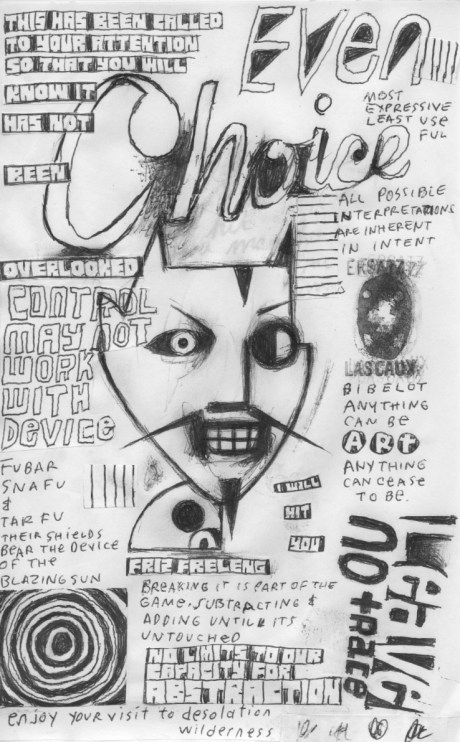 THIS HAS BEEN CALLED
TO YOUR ATTENTION
SO THAT YOU WILL
KNOW IT
HAS NOT
BEEN
OVERLOOKED
EVEN
Choice
MOST
EXPRESSIVE
LEAST USE
FUL
ALL POSSIBLE
INTERPRETATIONS
ARE INHERENT
IN INTENT
CONTROL
MAY NOT
WORK
WITH
DEVICE
ERSATZ
LASCAUX
BIBELOT
ANYTHING
CAN BE
ART
ANYTHING
CAN CEASE
TO BE.
FUBAR
SNAFU
&
TARFU
THEIR SHIELDS
BEAR THE DEVICE
OF THE
BLAZING SUN
I WILL
HIT
YOU
FRIZ FRELENG
BREAKING IT IS PART OF THE
GAME. SUBTRACTING &
ADDING UNTIL ITS
UNTOUCHED
NO LIMITS TO OUR
CAPACITY FOR
ABSTRACTION
no trace
enjoy your visit to desolation
wilderness